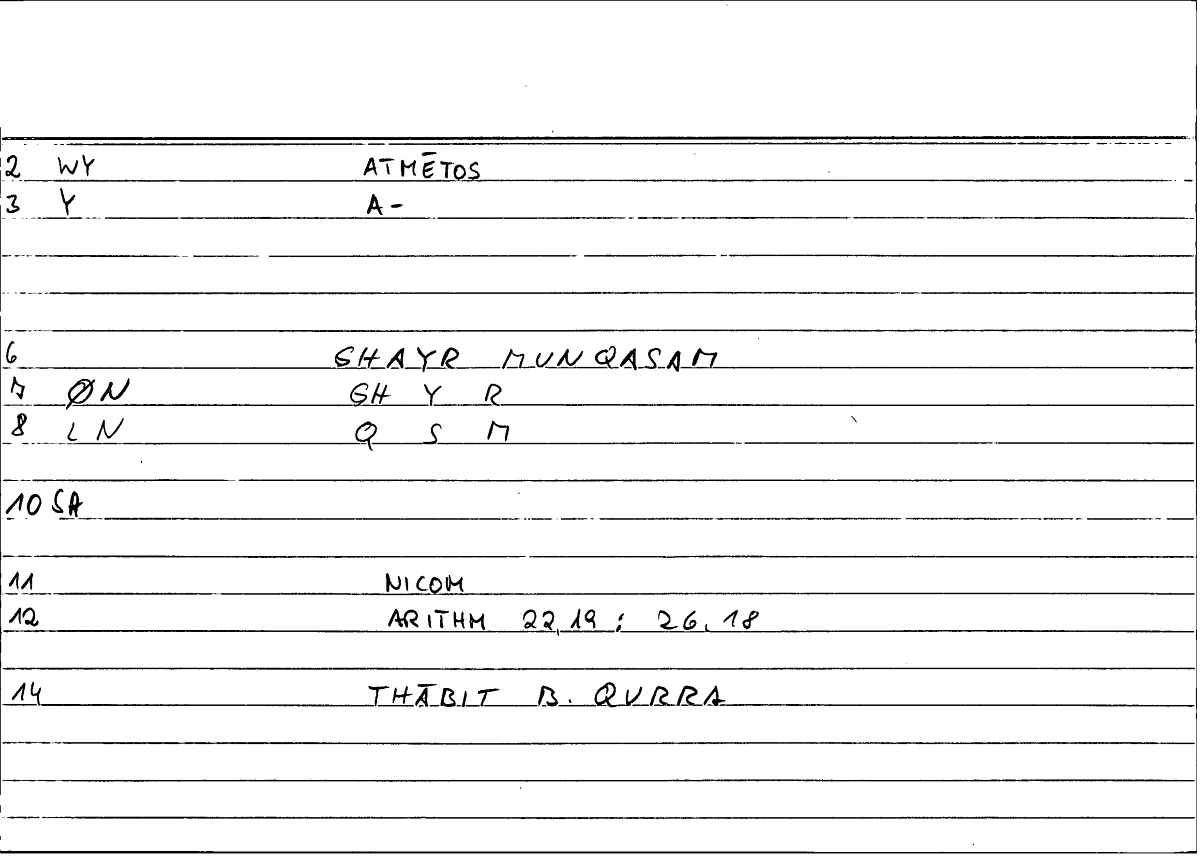 2 WY ATMĒTOS
3 Y A-
6 GHAYR MUNQASAM
7 ØN GH Y R
8 LN Q S M
10 SA
11 NICOM
12 ARITHM 22,19 ; 26,18
14 THĀBIT B. QURRA